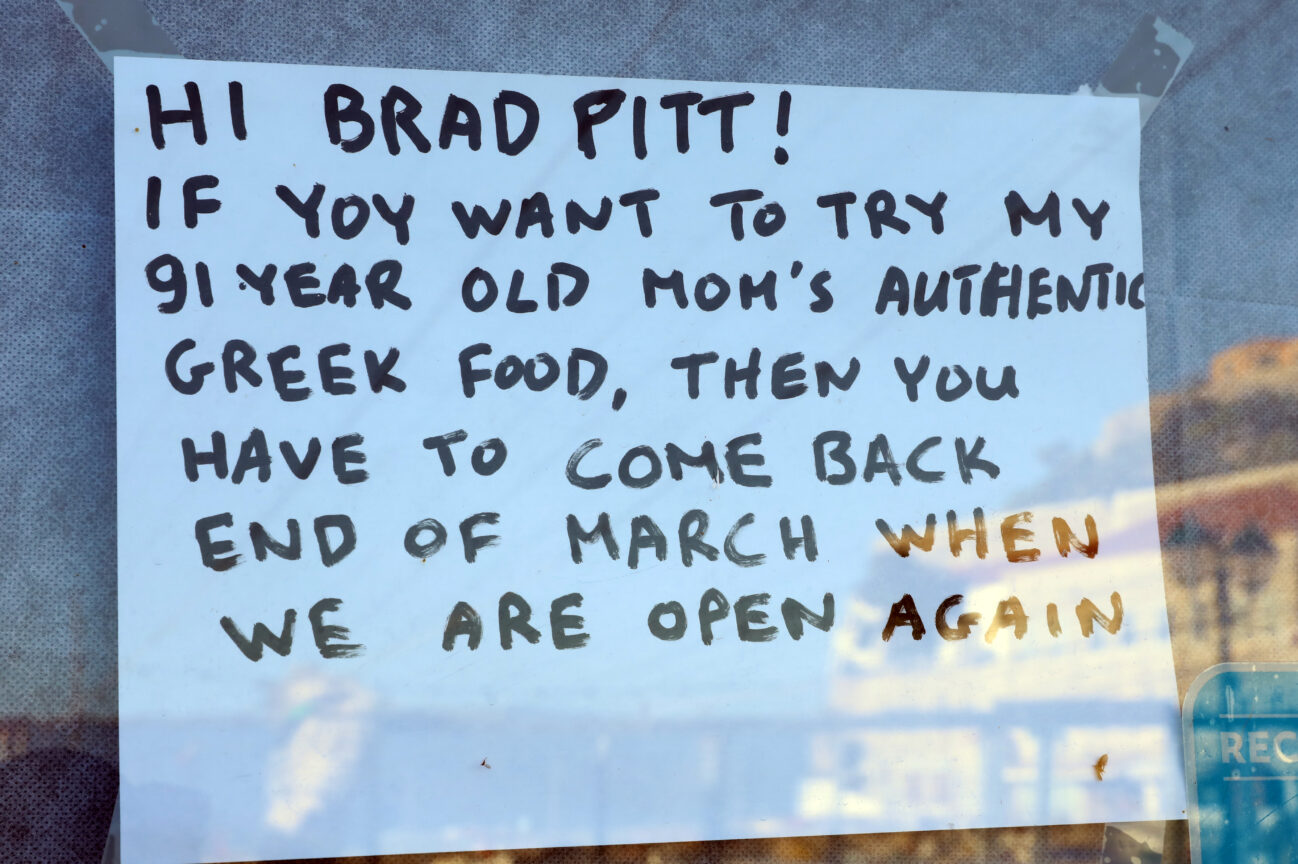 HI BRAD PITT!
IF YOY WANT TO TRY MY
91 YEAR OLD MOM'S AUTHENTIC
GREEK FOOD, THEN YOU
HAVE TO COME BACK
END OF MARCH WHEN
WE ARE OPEN AGAIN
REC